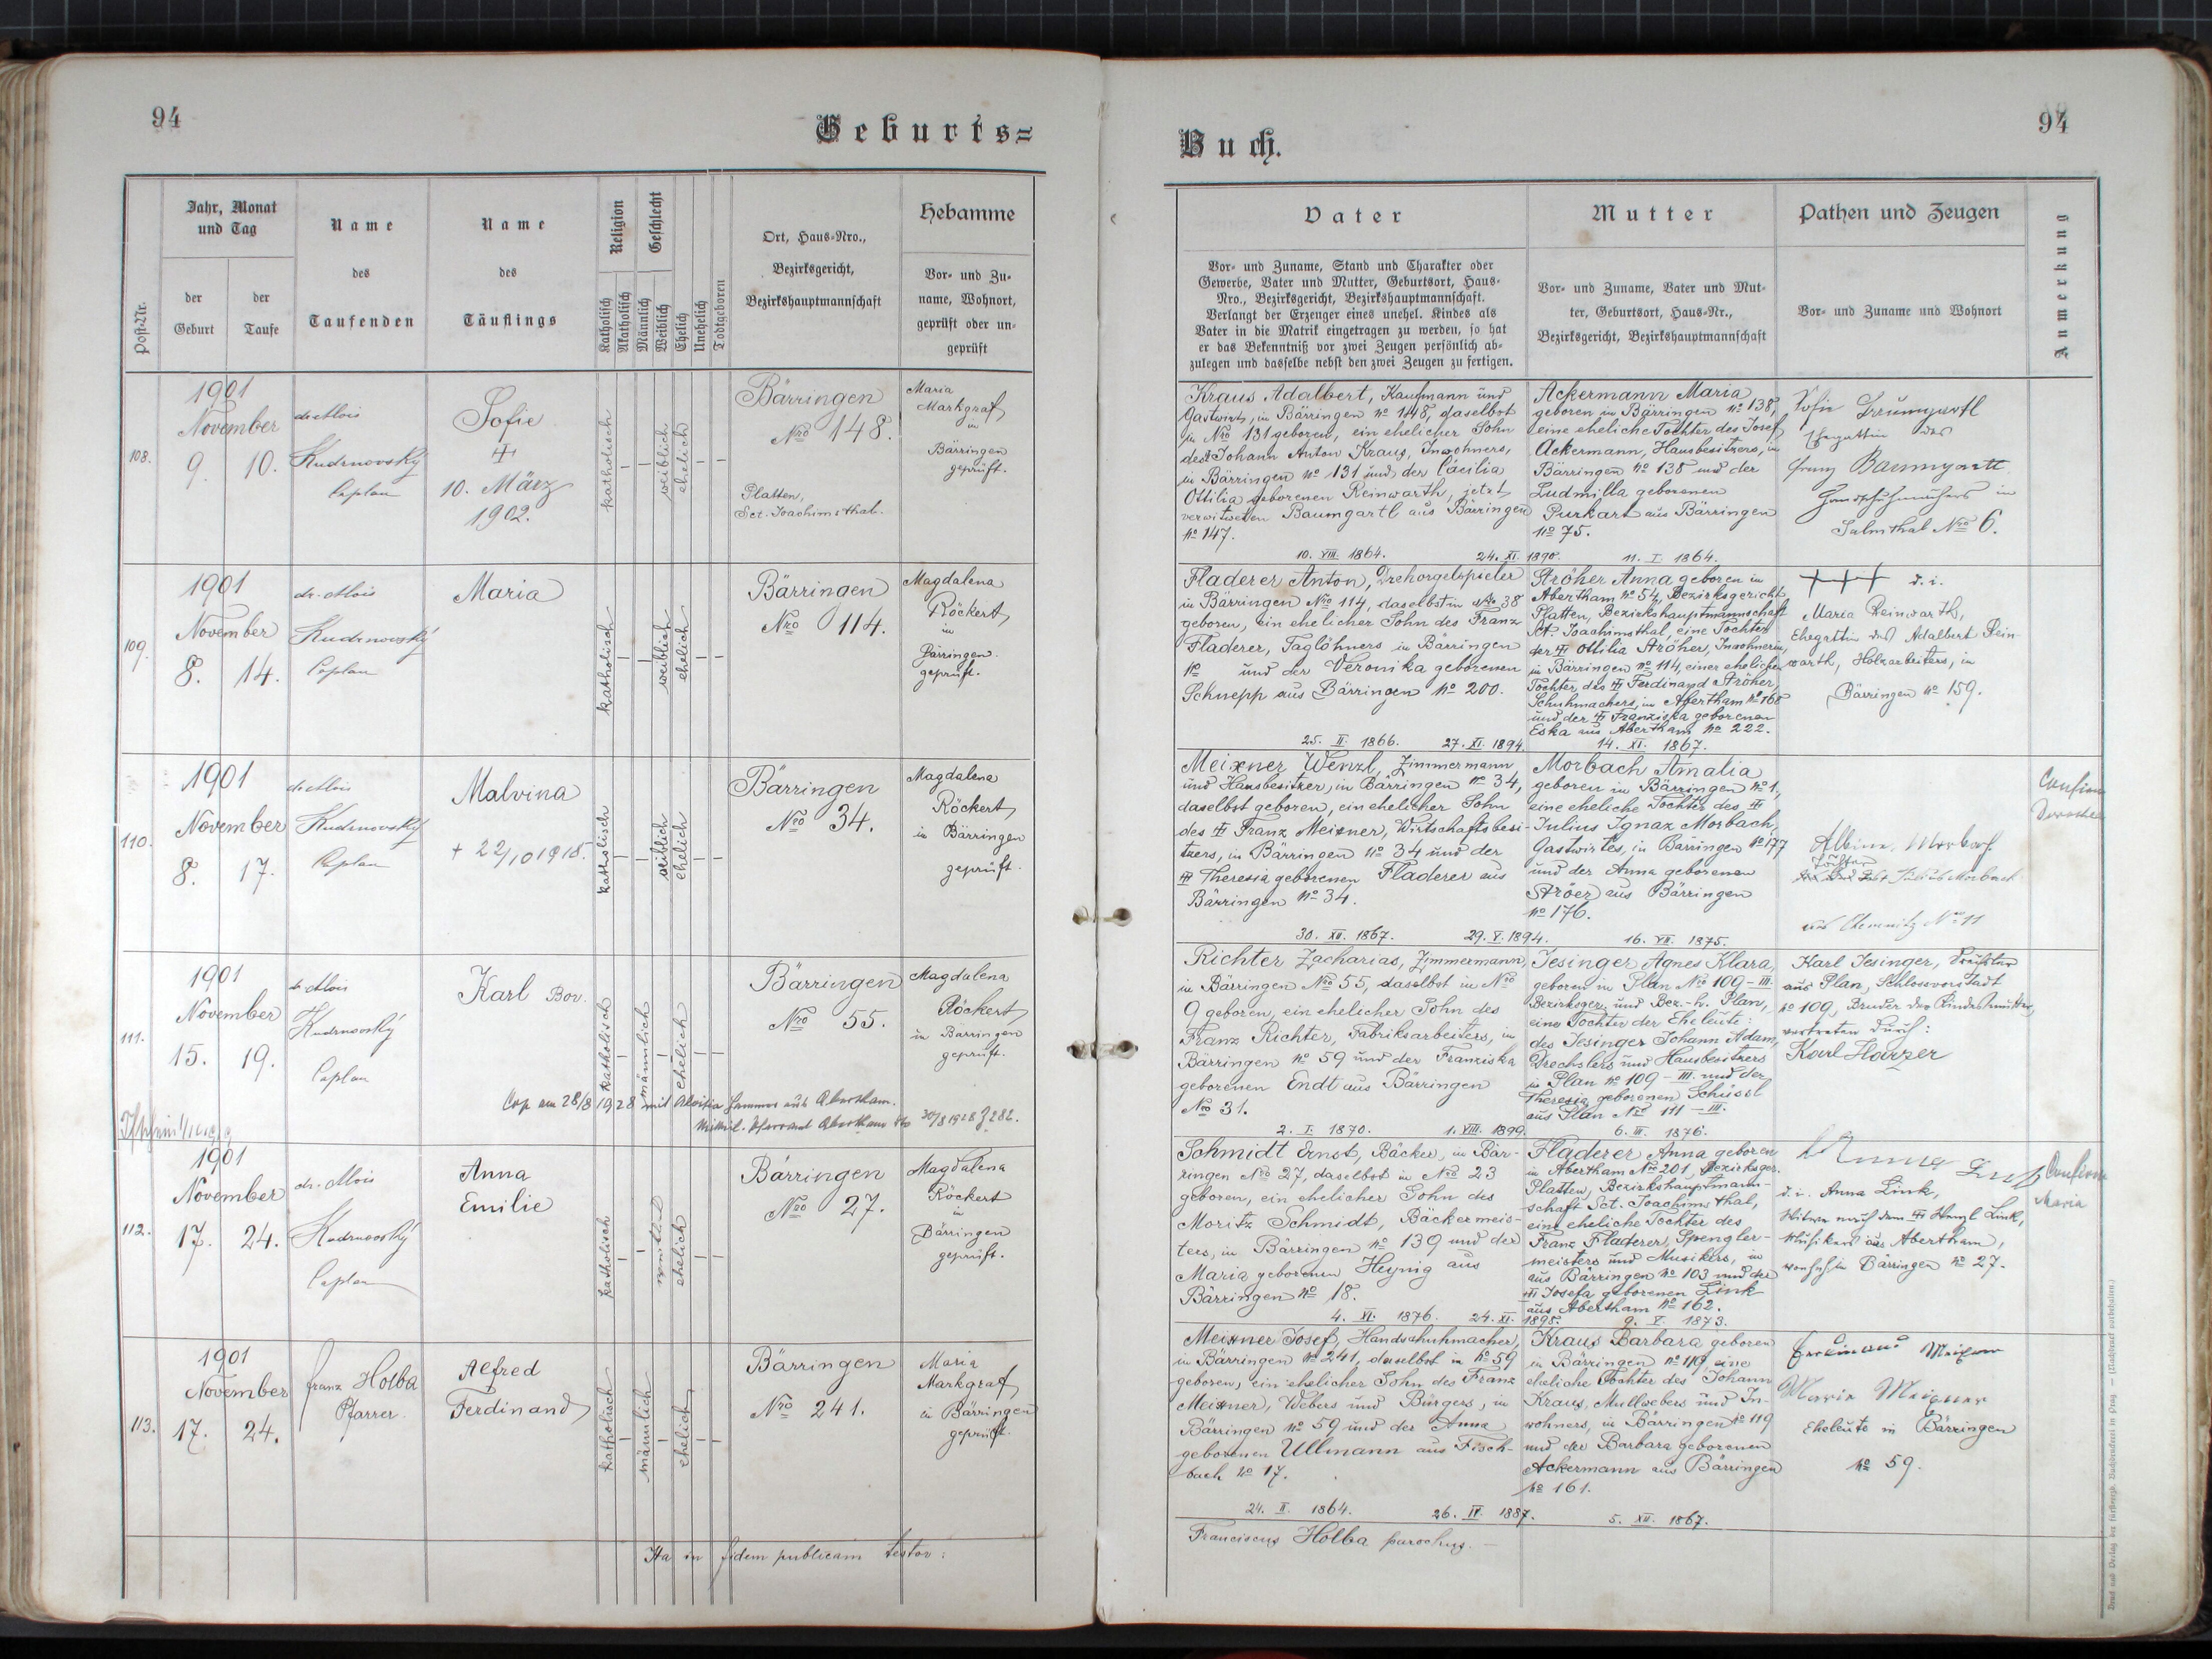 94
Geburts=
Post-Nr.
Jahr, Monat
und Tag
der
Geburt
der
Taufe
Name
des
Taufenden
Name
des
Täuflings
Religion
Katholisch
Akatholisch
Geschlecht
Männlich
Weiblich
Ehelich
Unehelich
Todtgeboren
Ort, Haus-Nro.,
Bezirksgericht,
Bezirkshauptmannschaft
Hebamme
Vor- und Zu-
name, Wohnort,
geprüft oder un-
geprüft
108.
1901
November
9. 10.
dr Alois
Kudrnovský
Caplan
Sofie
10. März
1902.
katholisch
weiblich
ehelich
Bärringen
Nro 148.
Platten,
Sct. Joachimsthal.
Maria
Markgraf
in
Bärringen
geprüft.
109.
1901
November
8. 14.
dr. Alois
Kudrnovský
Caplan
Maria
katholisch
weiblich
ehelich
Bärringen
Nro 114.
Magdalena
Röckert
in
Bärringen
geprüft.
110.
1901
November
8. 17.
dr Alois
Kudrnovský
Caplan
Malvina
+ 22/10 1918.
katholisch
weiblich
ehelich
Bärringen
Nro 34.
Magdalena
Röckert
in Bärringen
geprüft.
111.
1901
November
15. 19.
dr Alois
Kudrnovský
Caplan
Karl Bor.
katholisch
männlich
ehelich
Bärringen
Nro 55.
Magdalena
Röckert
in Bärringen
geprüft.
Cop am 28/8 1928 mit Aloisia Hammer aus Abertham.
Pfarramt Abertham 30/8 1928 Z 282.
112.
1901
November
17. 24.
dr. Alois
Kudrnovský
Caplan
Anna
Emilie
katholisch
weiblich
ehelich
Bärringen
Nro 27.
Magdalena
Röckert
in
Bärringen
geprüft.
113.
1901
November
17. 24.
Franz Holba
Pfarrer.
Alfred
Ferdinand
katholisch
männlich
ehelich
Bärringen
Nro 241.
Maria
Markgraf
in Bärringen
geprüft.
Ita in fidem publicam testor:
Buch.
94
Vater
Vor- und Zuname, Stand und Charakter oder
Gewerbe, Vater und Mutter, Geburtsort, Haus-
Nro., Bezirksgericht, Bezirkshauptmannschaft.
Verlangt der Erzeuger eines unehel. Kindes als
Vater in die Matrik eingetragen zu werden, so hat
er das Bekenntniß vor zwei Zeugen persönlich ab-
zulegen und dasselbe nebst den zwei Zeugen zu fertigen.
Mutter
Vor- und Zuname, Vater und Mut-
ter, Geburtsort, Haus-Nr.,
Bezirksgericht, Bezirkshauptmannschaft
Pathen und Zeugen
Vor- und Zuname und Wohnort
Anmerkung
Kraus Adalbert, Kaufmann und
Gastwirt, in Bärringen No 148, daselbst
in Nro 131 geboren, ein ehelicher Sohn
des Johann Anton Kraus, Inwohners,
in Bärringen No 131 und der Cäcilia
Ottilia geborenen Reinwarth, jetzt
verwitweten Baumgartl aus Bärringen
No 147.
10. VIII. 1864. 24. XI. 1890.
Ackermann Maria
geboren in Bärringen No 138,
eine eheliche Tochter des Josef
Ackermann, Hausbesitzers, in
Bärringen No 138 und der
Ludmilla geborenen
Purkart aus Bärringen
No 75.
11. I. 1864.
Sofie Baumgartl
Ehegattin des
Franz Baumgartl
Handschuhmachers in
Salmthal Nro 6.
Fladerer Anton, Drehorgelspieler
in Bärringen Nro 114, daselbst in Nro 38
geboren, ein ehelicher Sohn des Franz
Fladerer, Taglöhners in Bärringen
No und der Veronika geborenen
Schnepp aus Bärringen No 200.
25. II. 1866. 27. XI. 1894.
Ströher Anna geboren in
Abertham No 54, Bezirksgericht
Platten, Bezirkshauptmannschaft
Sct. Joachimsthal, eine Tochter
der Ottilia Ströher, Inwohnerin,
in Bärringen No 114, einer ehelichen
Tochter des Ferdinand Ströher,
Schuhmachers, in Abertham No 168
und der Franziska geborenen
Eska aus Abertham No 222.
14. XI. 1867.
+++ d. i.
Maria Reinwarth,
Ehegattin des Adalbert Rein-
warth, Holzarbeiters, in
Bärringen No 159.
Meixner Wenzl, Zimmermann
und Hausbesitzer, in Bärringen No 34,
daselbst geboren, ein ehelicher Sohn
des Franz Meixner, Wirtschaftsbesi-
tzers, in Bärringen No 34 und der
Theresia geborenen Fladerer aus
Bärringen No 34.
30. XII. 1867. 29. V. 1894.
Morbach Amalia
geboren in Bärringen No 1,
eine eheliche Tochter des
Julius Ignaz Morbach,
Gastwirtes, in Bärringen No 177
und der Anna geborenen
Ströer aus Bärringen
No 176.
16. VII. 1875.
Albine Morbach
Tochter
Julius Morbach
aus Chemnitz No 11
Richter Zacharias, Zimmermann,
in Bärringen Nro 55, daselbst in Nro
9 geboren, ein ehelicher Sohn des
Franz Richter, Fabriksarbeiters, in
Bärringen No 59 und der Franziska
geborenen Endt aus Bärringen
Nro 31.
2. I. 1870. 1. VIII. 1899.
Jesinger Agnes Klara,
geboren in Plan Nro 109-III.
Bezirksger. und Bez.-h. Plan,
eine Tochter der Eheleute:
des Jesinger Johann Adam,
Drechslers und Hausbesitzers
in Plan No 109-III. und der
Theresia geborenen Schüssl
aus Plan Nro 111-III.
6. III. 1876.
Karl Jesinger, Drechsler
aus Plan, Schlossvorstadt
No 109, Bruder der Kindesmutter,
vertreten durch:
Karl Harzer
Schmidt Ernst, Bäcker, in Bär-
ringen Nro 27, daselbst in Nro 23
geboren, ein ehelicher Sohn des
Moritz Schmidt, Bäckermeis-
ters, in Bärringen No 139 und der
Maria geborenen Heynig aus
Bärringen No 18.
4. XI. 1876. 24. XI. 1898.
Fladerer Anna geboren
in Abertham Nro 201, Bezirksger.
Platten, Bezirkshauptmann-
schaft Sct. Joachimsthal,
eine eheliche Tochter des
Franz Fladerer, Spengler-
meisters und Musikers, in
aus Bärringen No 103 und der
Josefa geborenen Link
aus Abertham No 162.
9. V. 1873.
Anna Link
d. i. Anna Link,
Witwe nach dem Wenzl Link,
Musikers aus Abertham,
wohnh. in Bärringen No 27.
Maria
Meixner Josef, Handschuhmacher,
in Bärringen No 241, daselbst in No 59
geboren, ein ehelicher Sohn des Franz
Meixner, Webers und Bürgers, in
Bärringen No 59 und der Anna
geborenen Ullmann aus Fisch-
bach No 17.
24. II. 1864. 26. IV. 1887.
Kraus Barbara geboren
in Bärringen No 119, eine
eheliche Tochter des Johann
Kraus, Mullwebers und In-
wohners, in Bärringen No 119
und der Barbara geborenen
Ackermann aus Bärringen
No 161.
5. XII. 1867.
Ferdinand Meixner
Maria Meixner
Eheleute in Bärringen
No 59.
Franciscus Holba parochus.